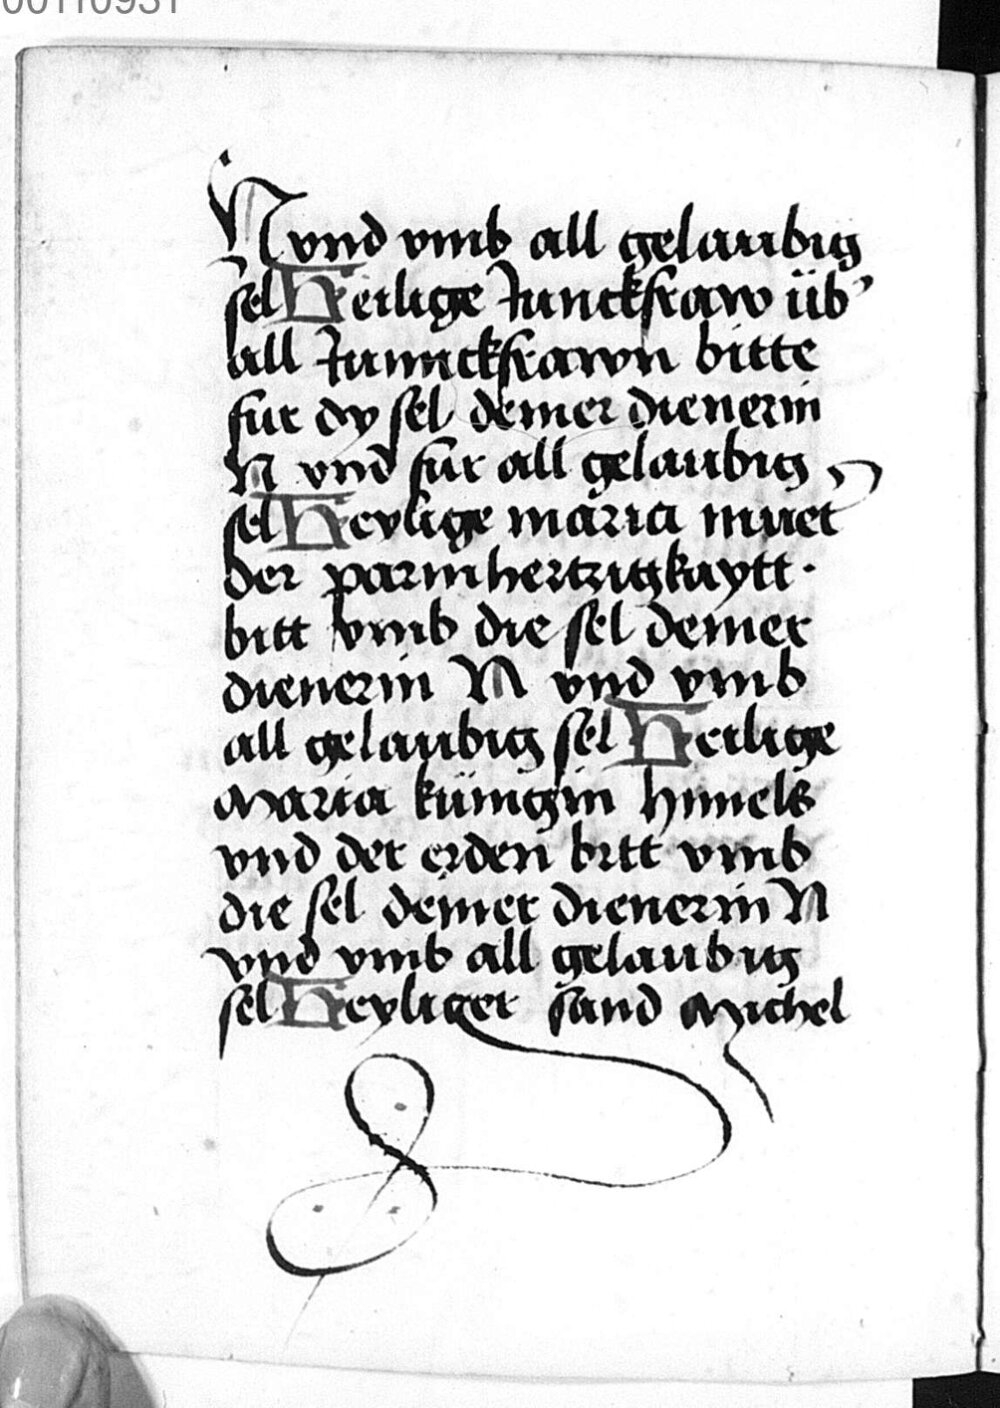 00110931
N vnd vmb all gelaubig
sel Heilige Junckfraw üb'
all Junnckfrawn bitte
fur dy sel deiner dienerin
N vnd fur all gelaubig
sel Heylige maria muet'
der parmhertzigkaytt ·
bitt vmb die sel deiner
dienerin N vnd vmb
all gelaubig sel Heilige
Maria künigin himels
vnd der erden bitt vmb
die sel deiner dienerin N
vnd vmb all gelaubig
sel Heyliger sand Michel